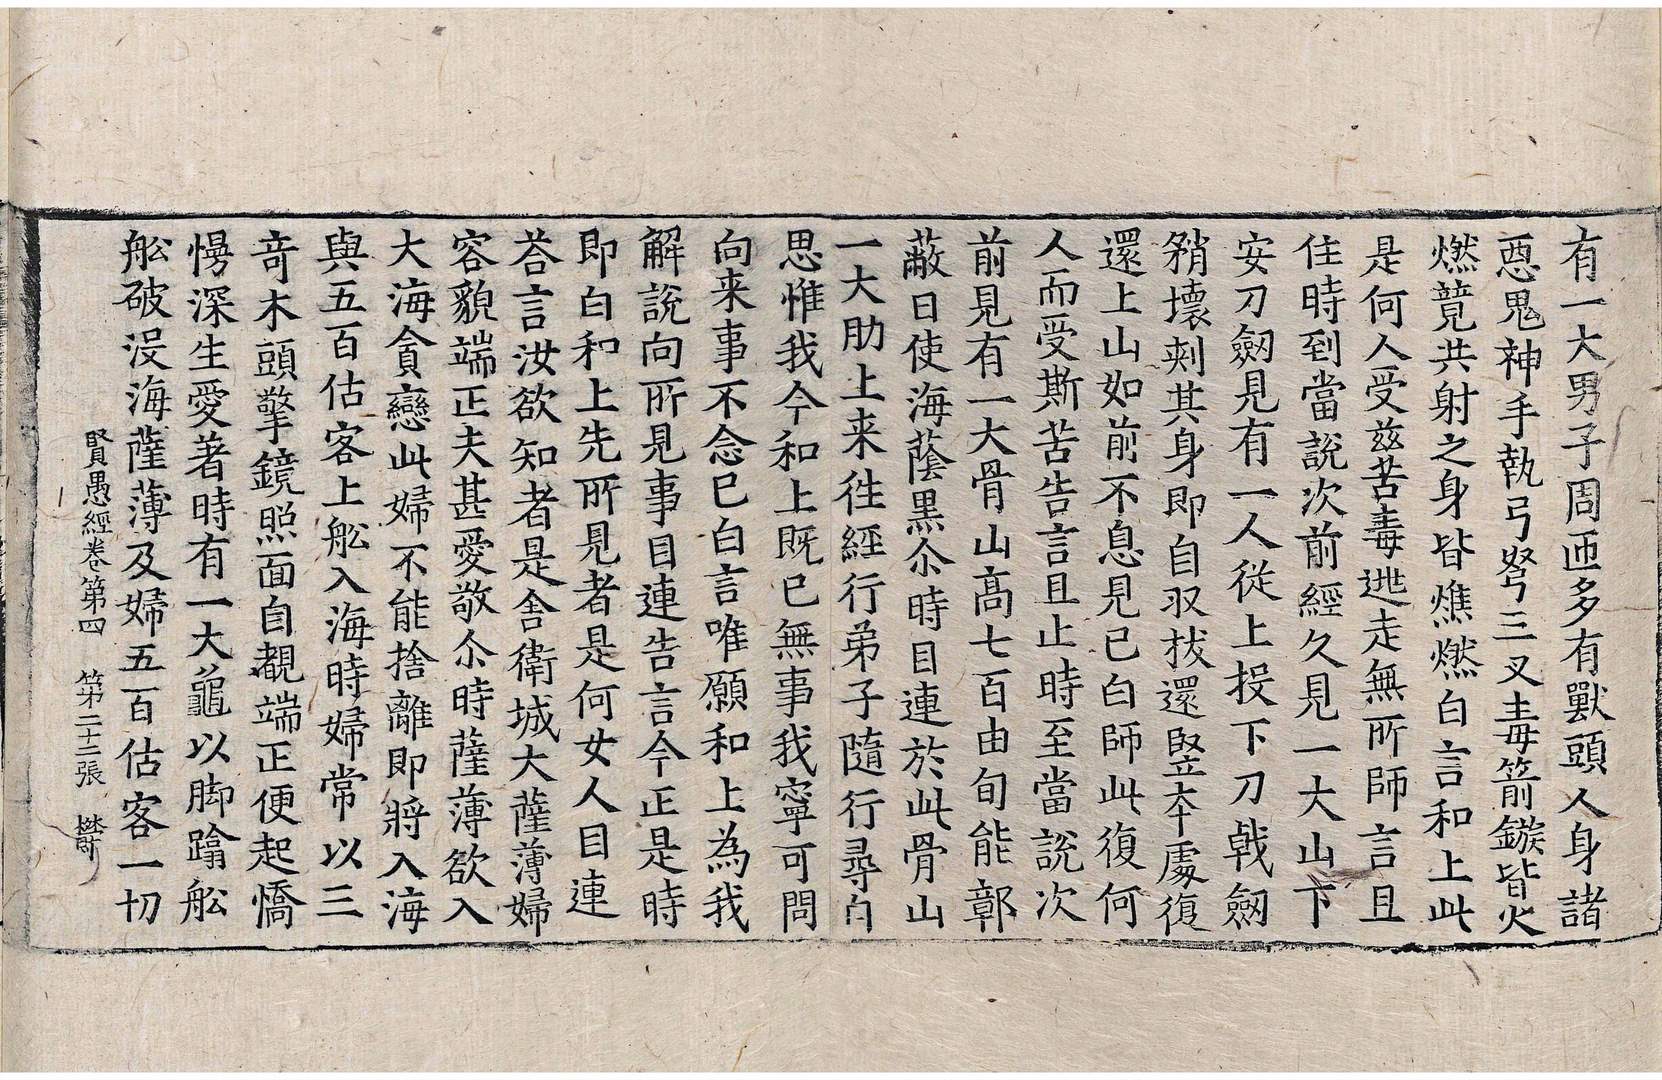 有一大男子周匝多有獸頭人身諸
惡鬼神手執弓弩三叉毒箭鏃皆火
燃競共射之身皆燋燃白言和上此
是何人受茲苦毒逃走無所師言且
住時到當說次前經久見一大山下
安刀劒見有一人從上投下刀戟劒
矟壞刺其身即自収拔還竪夲處復
還上山如前不息見已白師此復何
人而受斯苦告言且止時至當說次
前見有一大骨山高七百由旬能鄣
蔽日使海蔭黒尒時目連於此骨山
一大肋上来徃經行弟子隨行尋自
思惟我今和上既已無事我寧可問
向来事不念已白言唯願和上為我
解說向所見事目連告言今正是時
即白和上先所見者是何女人目連
荅言汝欲知者是舍衛城大薩薄婦
容貌端正夫甚愛敬尒時薩薄欲入
大海貪戀此婦不能捨離即將入海
與五百估客上舩入海時婦常以三
竒木頭擎鏡照面自覩端正便起憍
慢深生愛著時有一大龜以脚蹹舩
舩破没海薩薄及婦五百估客一切
賢愚經卷第四 第二十二張